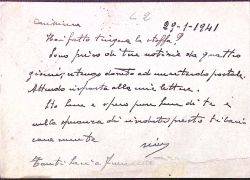 L 2
29-1-1941
Hai fatto tingere la stoffa?
Sono privo di tue notizie da quattro
giorni, ritengo dovuto ad un ritardo postale.
Attendo risposta alle mie lettere.
Io bene e spero pure bene di te e
nella speranza di rivederti presto ti bacio
caramente